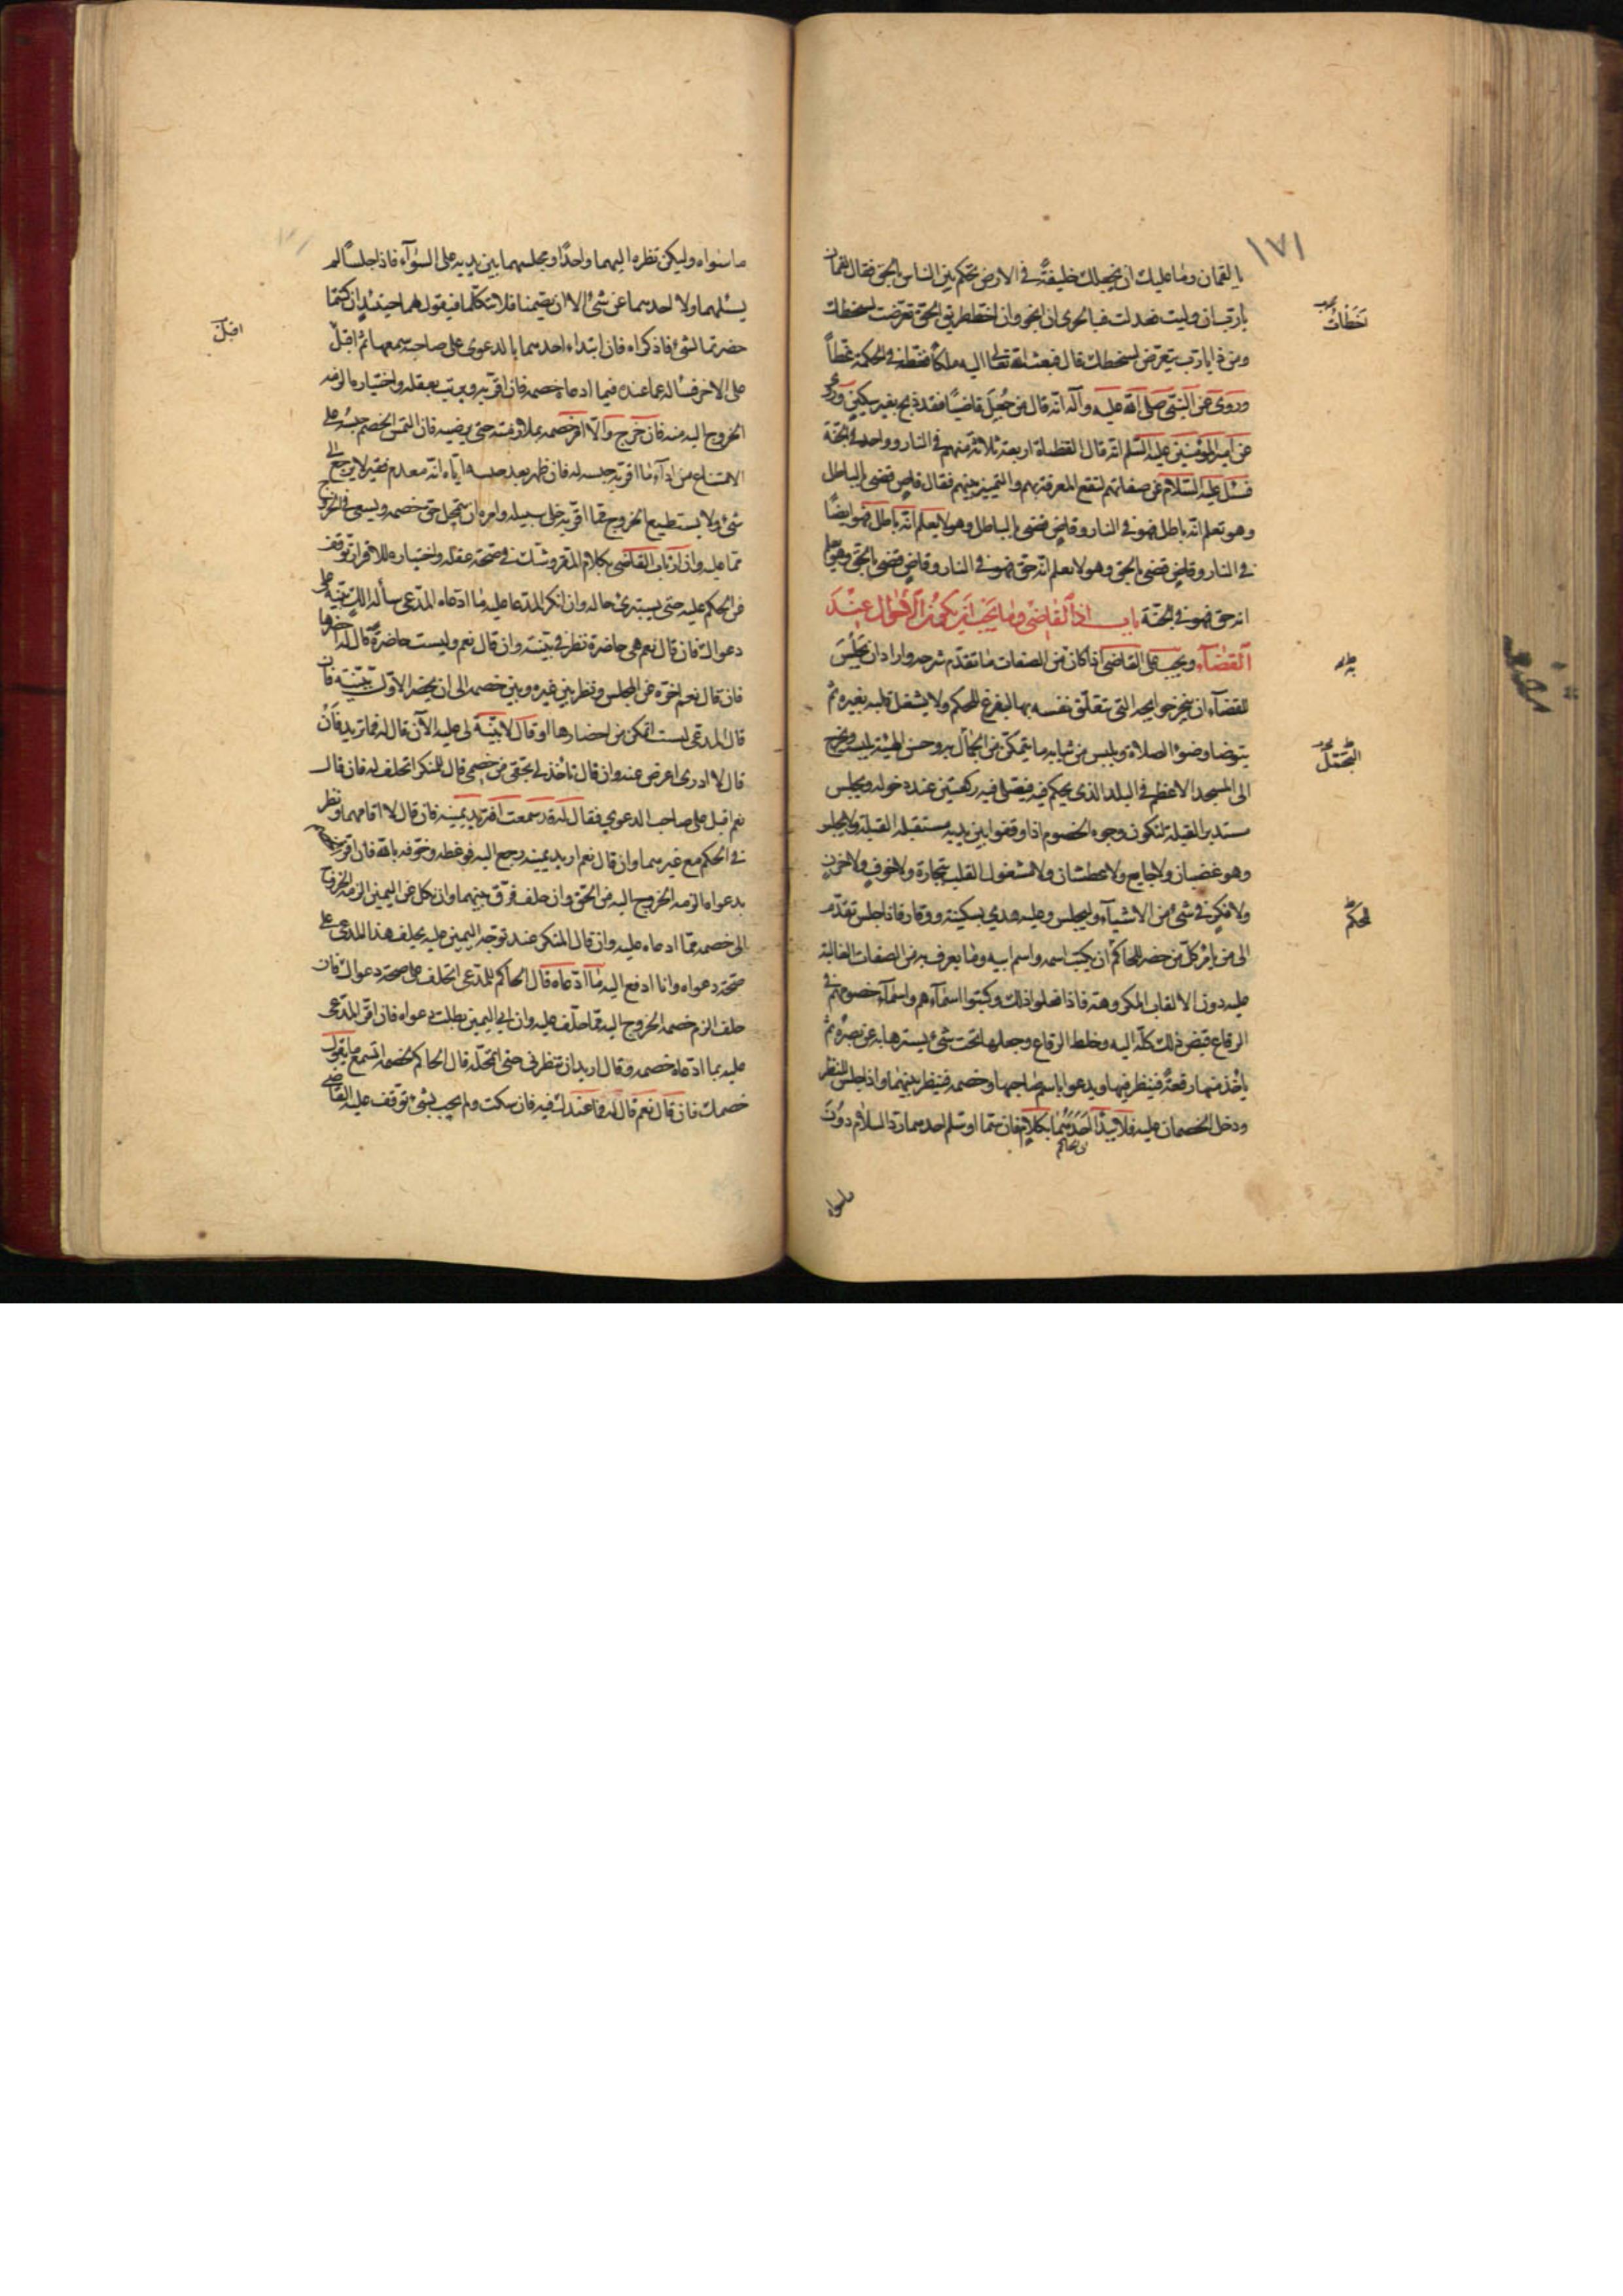 ١٧١
يا لقمان وما عليك ان نجعلك خليفةً في الارض تحكم بين الناس بالحق فقال لقمان
يا رب ان وليت فعدلت فبالحرى ان انجو وان اخطأ طريق الحق تعرضت لسخطك
ومن ذا يا رب يتعرض لسخطك قال فبعث الله تعالى اليه ملكاً فغطه في الحكمة غطاً
وروى عن النبي صلى الله عليه وآله انه قال من جُعِلَ قاضياً فقد ذبح بغير سكين وروى
عن امير المؤمنين عليه السلم انه قال القضاة اربعة ثلاثة منهم في النار وواحد في الجنة
فسئل عليه السلام عن صفاتهم لتقع المعرفة بهم والتمييز بينهم فقال قاضٍ قضى بالباطل
وهو يعلم انه باطل فهو في النار وقاضٍ قضى بالباطل وهو لا يعلم انه باطل فهو ايضاً
في النار وقاضٍ قضى بالحق وهو لا يعلم انه حق فهو في النار وقاضٍ قضى بالحق وهو يعلم
انه حق فهو في الجنة باب ادب القاضي وما يجب ان يكون من الاحوال عند
القضآء ويجب على القاضي اذا كان من الصفات ما تقدم شرحه واراد ان يجلس
للقضآء ان ينجز حوايجه التي تتعلق نفسه بها ليفرغ للحكم ولا يشغل قلبه بغيره ثم
يتوضأ وضوء الصلاة ويلبس من ثيابه ما يتمكن من الجمال به وحسن الهيئة بلبسه ويخرج
الى المسجد الاعظم في البلد الذي يحكم فيه فيصلى فيه ركعتين عند دخوله ويجلس
مستدبر القبلة لتكون وجوه الخصوم اذا وقفوا بين يديه مستقبله القبلة ولا يجلس
وهو غضبان ولا جايع ولا عطشان ولا مشغول القلب بتجارة ولا خوف ولا حزن
ولا فكر في شئ من الاشيآء وليجلس وعليه هدي بسكينة ووقار فاذا جلس تقدم
الى من يامر كل من حضر للحاكم ان يكتب اسمه واسم ابيه وما يعرف به من الصفات الغالبة
عليه دون الالقاب المكروهة فاذا فعلوا ذلك وكتبوا اسمآءهم واسمآء خصومهم في
الرقاع قبض ذلك كله اليه وخلط الرقاع وجعلها تحت شئ يسترها به عن بصره ثم
يأخذ منها رقعة فينظر فيها ويدعوا باسم صاحبها وخصمه فينظر بينهما واذا جلس للنظر
ودخل الخصمان عليه فلا يبدأ احدهما بكلام فان سلما او سلم احدهما رد السلام دون
ما سواه
خَطَأتُ
التجمل
للحكم
ما سواه وليكن نظره اليهما واحداً ومجلسهما بين يديه على السوآء فاذا جلسا لم
يسئلهما ولا احدهما عن شئ الا ان يصمتا فلا يتكلما فيقول لهما حينئذ ان كنتما
حضرتما لشئ فاذكراه فان ابتداء احدهما بالدعوى على صاحبه سمعها ثم اقبل
على الاخر فسأله عما عنده فيما ادعاه خصمه فان اقر به ولم يرتب بعقله واختياره الزمه
الخروج اليه منه فان خرج والا امر خصمه بملازمته حتى يرضيه فان التمس الخصم حبسه على
الامتناع من ادآء ما اقر به حبسه له فان ظهر بعد حبسه اياه انه معدم فقير لا يرجع الى
شئ ولا يستطيع الخروج مما اقر به خلى سبيله وامره ان يتمحل حق خصمه ويسعى في الخروج
مما عليه وان ارتاب القاضي بكلام المقر وشك في صحة عقله واختياره للاقرار توقف
عن الحكم عليه حتى يستبرئ حاله وان انكر المدعا عليه ما ادعاه المدعى سأله الك بينة على
دعواك فان قال نعم هي حاضرة نظر في بينته وان قال نعم وليست حاضرة قال له احضرها
فان قال نعم اخره عن المجلس ونظر بين غيره وبين خصمه الى ان يحضر الاول ببينته فان
قال المدعى لست اتمكن من احضارها او قال لا بينة لي عليه الآن قال له فما تريد فان
قال لا ادرى اعرض عنه وان قال تاخذ لي بحقى من خصمى قال للمنكر اتحلف له فان قال
نعم اقبل على صاحب الدعوى فقال له قد سمعت افتريد يمينه فان قال لا اقامهما ونظر
في الحكم مع غيرهما وان قال نعم اريد يمينه رجع اليه فوعظه وخوفه بالله فان اقر
بدعواه الزمه الخروج اليه من الحق وان حلف فرق بينهما وان نكل عن اليمين الزمه الخروج
الى خصمه مما ادعاه عليه وان قال المنكر عند توجه اليمين عليه يحلف هذا المدعى على
صحة دعواه وانا ادفع اليه ما ادعاه قال الحاكم للمدعى اتحلف على صحة دعواك فان
حلف الزم خصمه الخروج اليه مما حلف عليه وان ابى اليمين بطلت دعواه فان اقر المدعى
عليه بما ادعاه خصمه وقال اريد ان تنظرنى حتى اتمحله قال الحاكم لخصمه اتسمع ما يقول
خصمك فان قال نعم قال له فما عندك فيه فان سكت ولم يجب بشئ توقف عليه القاضى
اقبل